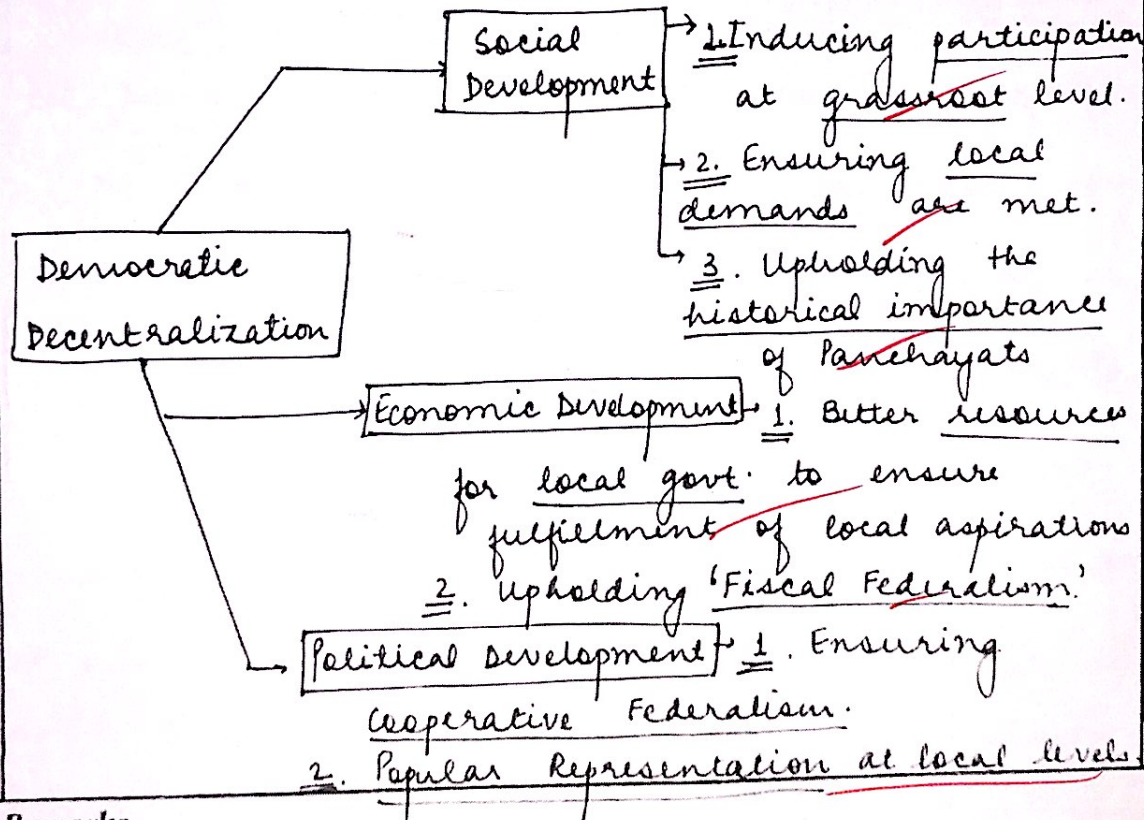 Social
Development
1. Inducing participation
at grassroot level.
2. Ensuring local
demands are met.
3. Upholding the
historical importance
of Panchayats
Democratic
Decentralization
Economic Development
1. Better resources
for local govt. to ensure
fulfielment of local aspirations
2. Upholding 'Fiscal Federalism.'
Political Development
1. Ensuring
Cooperative Federalism.
2. Popular Representation at local levels